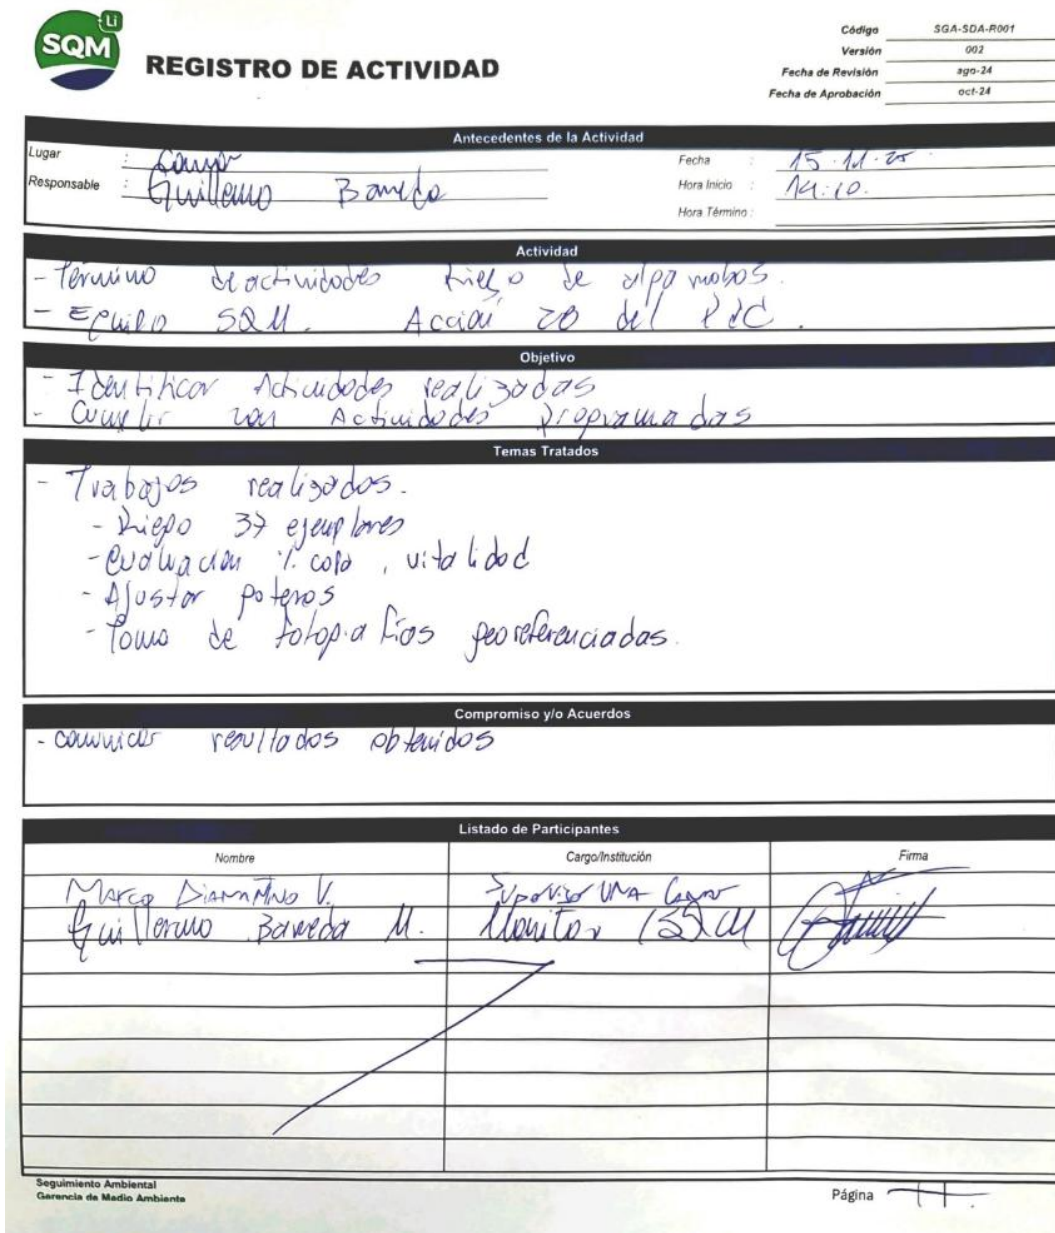 SQM
Li
REGISTRO DE ACTIVIDAD
Código SGA-SDA-R001
Versión 002
Fecha de Revisión ago-24
Fecha de Aprobación oct-24
Antecedentes de la Actividad
Lugar :
Fecha : 15.11.25
Responsable : Guillermo Barreda
Hora Inicio : 14:10.
Hora Término :
Actividad
- Término de actividades Riego de algarrobos.
- Equipo SQM. Acción 20 del PdC.
Objetivo
- Identificar Actividades realizadas
- Cumplir con Actividades programadas
Temas Tratados
- Trabajos realizados.
- Riego 37 ejemplares
- Evaluación % copa, vitalidad
- Ajustar poteros
- Toma de fotografías georeferenciadas.
Compromiso y/o Acuerdos
- comunicar resultados obtenidos
Listado de Participantes
Nombre Cargo/Institución Firma
Marco Diamantino V. Supervisor
Guillermo Barreda M. Monitor / SQM
Seguimiento Ambiental
Gerencia de Medio Ambiente
Página